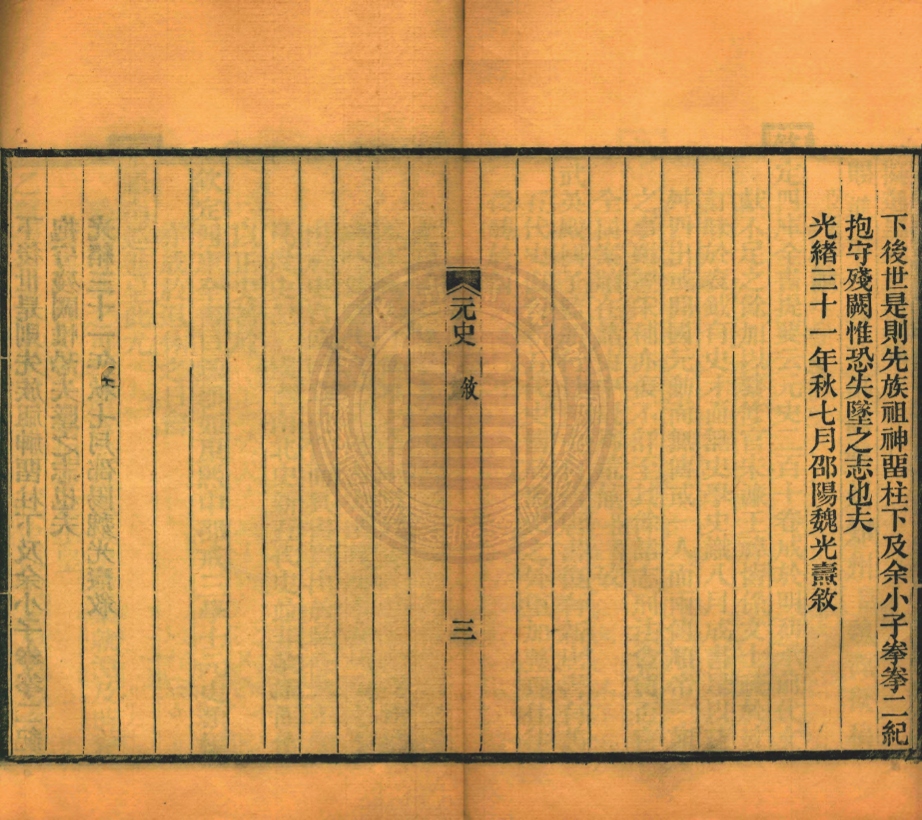 下後世是則先族祖神畱柱下及余小子拳拳二紀
抱守殘闕惟恐失墜之志也夫
光緒三十一年秋七月邵陽魏光燾敘
元史
敘
三